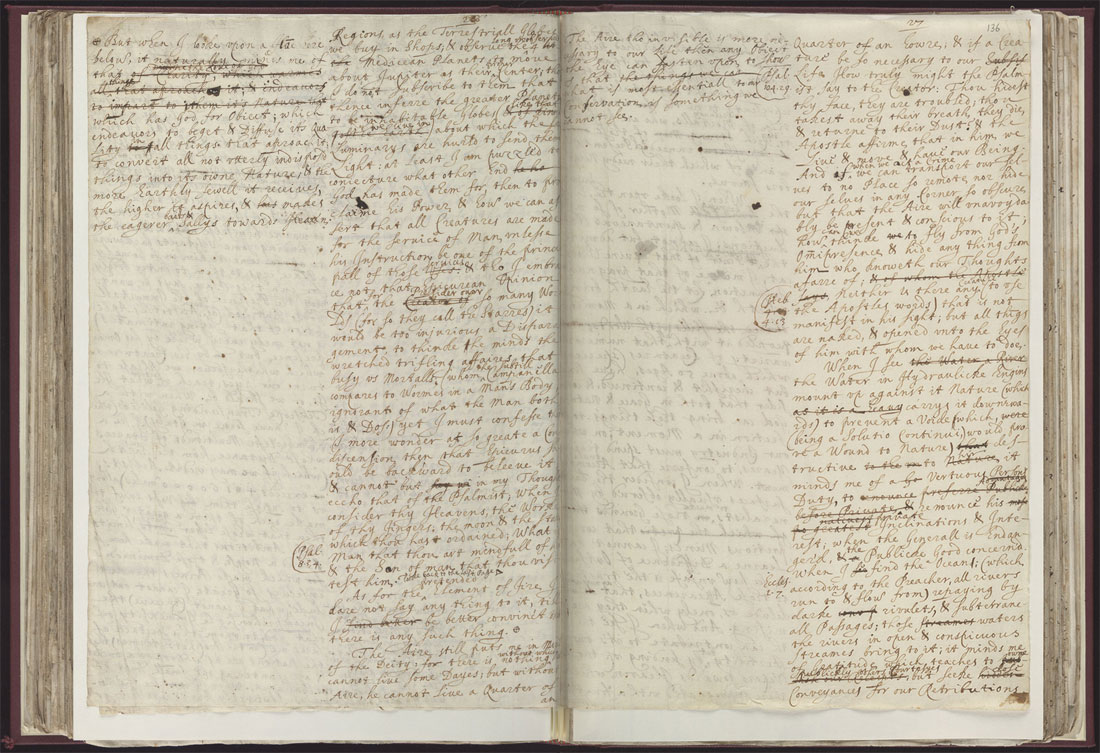 ⊕ But when I looke upon a fire here
belows, it naturally
that
all that aproaches it; & endeavors
to impart to them it's Nature but
which has God for Obiect; which
endeavors to beget & Diffuse its Qua
lity all things that aproach it;
to convert all not utterly indispos'd
things into its owne Nature; & the
more Earthly Fewell it receives,
the higher it aspires, & makes
the eagerer Sallys towards Heaven.
26
Regions, as the Terrestriall Globes
we buy in Shops; & obserue the 4
Medicean Planets move
about Jupiter as their Center, tho
I do not Subscribe to them that
thence inferre the greater Planets
to be inhabitable Globes
we live in about which the
Luminarys are hurl'd to send them
Light; at least I am puzzled to
coniecture what other End
God has made them for, then to pro
claime his Power, & how we can as
sert that all Creatures are made
for the Service of Man, unlesse
his Instruction be one of the princi
pall of those Services; & tho I embra
ce not that Epicurean Opinion
that, for the consider over so many Wor
lds (for so they call the Starres) it
would be too injurious a Dispara
gement to thinke he minds the
wretched trifling affaires that
busy us Mortalls, (whom the subtill Campanella
compares to Wormes in a Man's Body
ignorant of what the Man both
is, & Dos;) yet I must confesse tha
I more wonder at so greate a Con
discention, then that Epicurus sh
ould be backward to beleeve it
& cannot but in my Thoughts
eccho that of the Psalmist, When
consider thy Heavens, the Works
of thy Fingers, the moon & the Sta
which thou hast ordained; What
Man that thou art mindfull of
& the Son of man that thou visi
test him.
Psal.
8.3.4.
As for the pretended Element of Fire, I
dare not say any thing to it, till
I be better convinc't
there is any such thing. ⊕
The Aire still puts me in Min
of the Deity: for there is nothing without which
cannot live some Dayes; but without
Aire, he cannot live a Quarter of
an
The Aire tho invisible is more ne-
cessary to our Life then any Obiect
the Eye can fasten upon to show
us that the things we
that is most essentiall to
conservation is something we
cannot see.
Psal.
104.29.
27
136
Quarter of an Howre; & if a Crea
ture be so necessary to our
Life, How truly might the Psalm-
ist say to the Creator: Thou hidest
thy face, they are troubled; thou
takest away their breath, they die,
& returne to their Dust; & the
Apostle affirme that in him, we
live & move & have our Being.
And as when we act a Crime we can transport our sel-
ves to no Place so remote, nor hide
our selves in any Corner so obscure,
but that the Aire will unavoyda
bly be present & conscious to it;
how can we thinke to fly from God's
Omnipresence, & hide any thing from
him who knoweth our Thoughts
afarre of; & of whom the Apostle
says Neither is there any Creature (to use
the Apostles words) that is not
manifest in his sight; but all things
are naked, & opened unto the Eyes
of him with whom we have to doe.
Heb
4.13
When I see the Water a River
the Water in Hydraulicke Engins
mount up against it Nature (which
as it is a heavy carrys it downwa-
rds) to prevent a Voide (which, were
being a Solutio Continui, would pro
ve a Wound to Nature) that des-
tructive to the to Nature, it
minds me of a Vertuous Persons
Duty, to renounce preferre Publicke
before Private & renounce his
private Inclinations & Inte-
rest; when the Generall is Endan-
ger'd, & the Publicke Good concern'd.
When I find the Ocean; (which
according to the Preacher, all rivers
run to & flow from) repaying by
darke rivulets, & subterrane
all Passages; those streames waters
the rivers in open & conspicuous
Streames bring to it; it minds me
of Gratitude, which teaches to owne
publickly others Curtesys, but seeke close
Conveyances for our Retributions
Eccles
1.7.